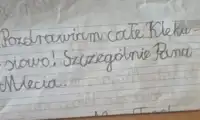 Pozdrawiam całe Kleko-
słowo! Szczególnie Pana
Miecia.